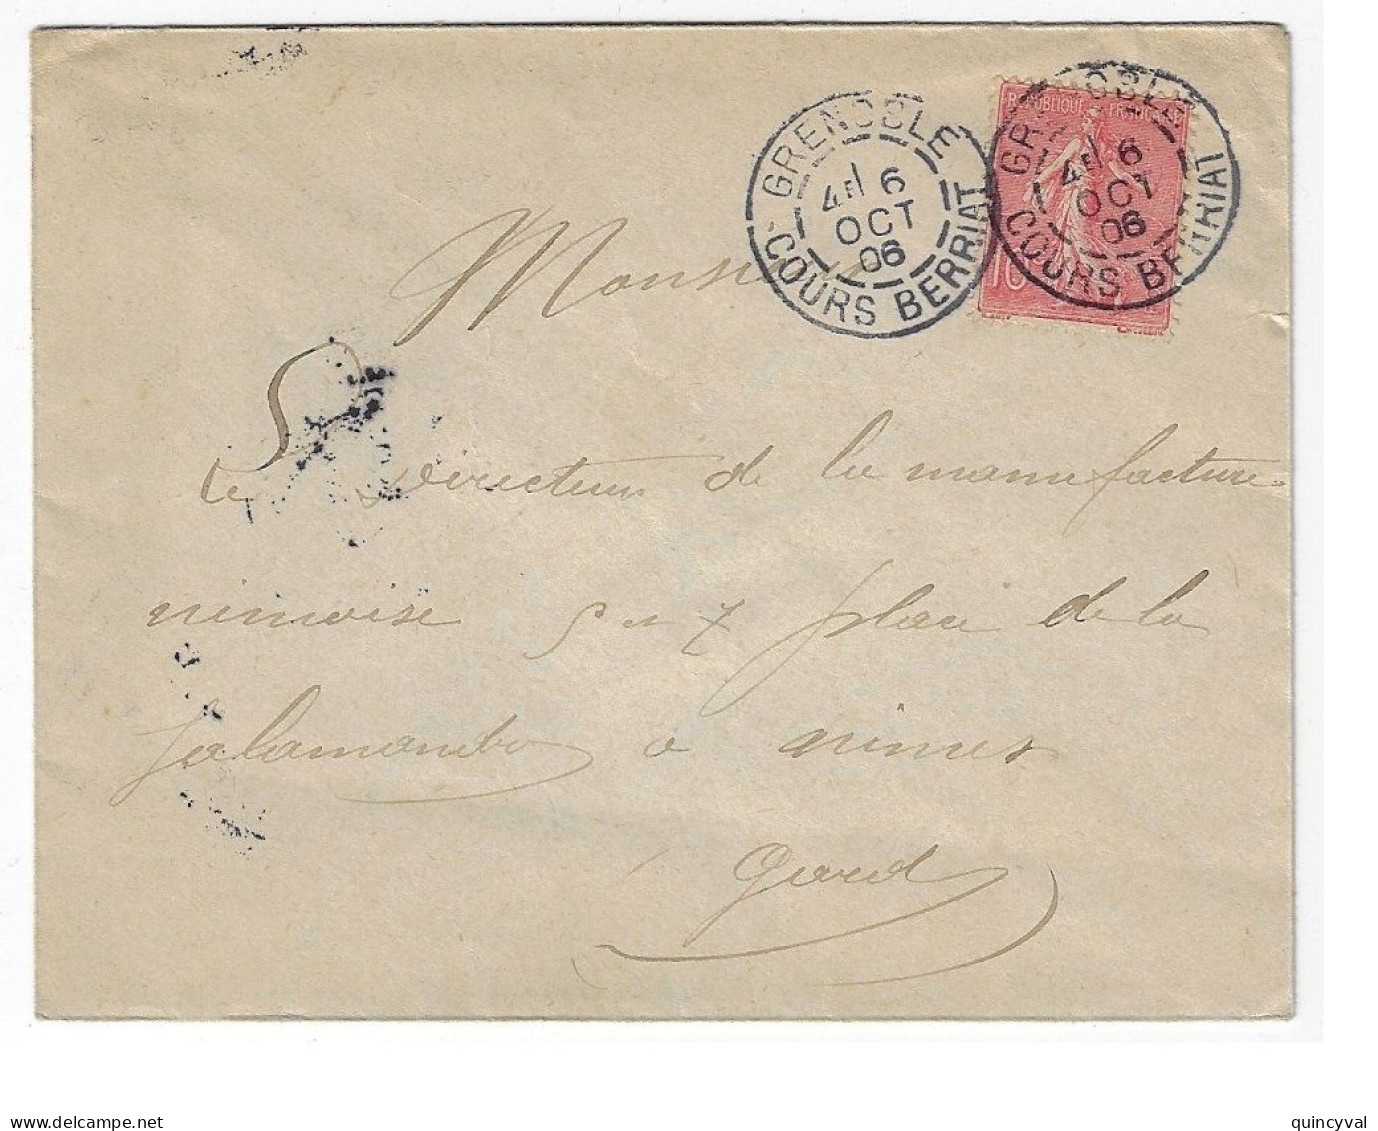 GRENOBLE
4E 6
OCT
06
COURS BERRIAT
REPUBLIQUE FRANCAISE
GRENOBLE
4E 6
OCT
06
COURS BERRIAT
10
Monsieur
Le directeur de la manufacture
nimoise 7 place de la
Salamandre a nimes
gard
delcampe.net
quincyval